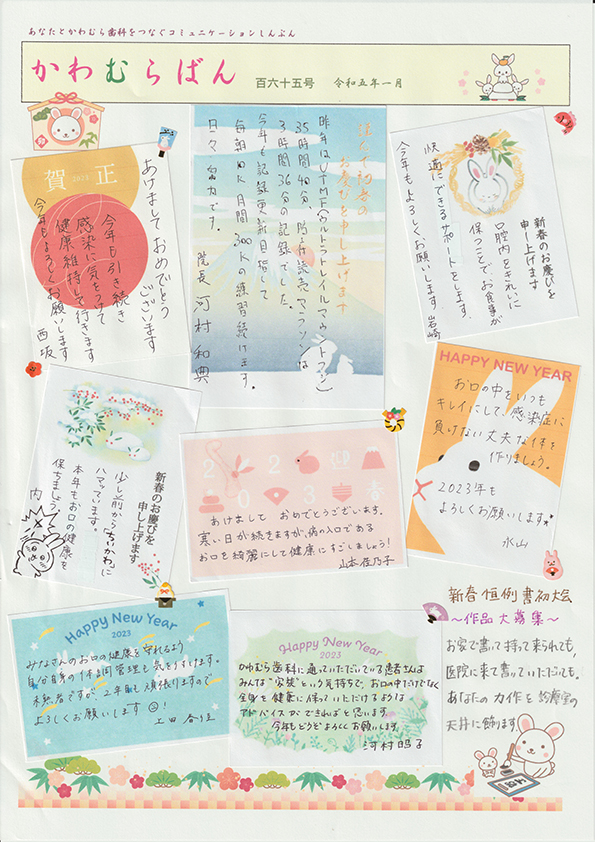 あなたとかわむら歯科をつなぐコミュニケーションしんぶん
かわむらばん
百六十五号 令和五年一月
賀正
2023
あけましておめでとう
ございます
今年も引き続き
感染に気をつけて
健康維持して行きます
今年もよろしくお願いします
西坂
謹んで初春の
お慶びを申し上げます
昨年はUTMF(ウルトラトレイルマウントフジ)
35時間40分
マラソンは
3時間36分の記録でした。
今年も記録更新目指して
毎朝10K月間300Kの練習続けます。
日々努力です。
院長 河村和典
新春のお慶びを
申し上げます
口腔内をきれいに
保つことで、お食事が
快適にできるサポートをします。
今年もよろしくお願いします 岩崎
新春のお慶びを
申し上げます
少し前から「ちいかわ」に
ハマっています。
本年もお口の健康を
保ちましょう
内
2023迎春
あけまして おめでとうございます。
寒い日が続きますが、病の入口である
お口を綺麗にして健康にすごしましょう!
山本佳乃子
HAPPY NEW YEAR
お口の中をいつも
キレイにして、感染症に
負けない丈夫な体を
作りましょう。
2023年も
よろしくお願いします。
水山
Happy New Year
2023
みなさんのお口の健康を守れるよう
自分自身の体調管理も気をつけます。
未熟者ですが、2年目も頑張りますので
よろしくお願いします
上田
Happy New Year
2023
かわむら歯科に通っていただいている患者さんは
みんな"家族"という気持ちで、お口の中だけでなく
全身を健康に保っていただけるような
アドバイスができればと思います。
今年もどうぞよろしくお願いします。
河村
新春恒例書初大会
〜作品大募集〜
お家で書いて持って来られても、
医院に来て書いていただいても。
あなたの力作を診療室の
天井に飾ります!